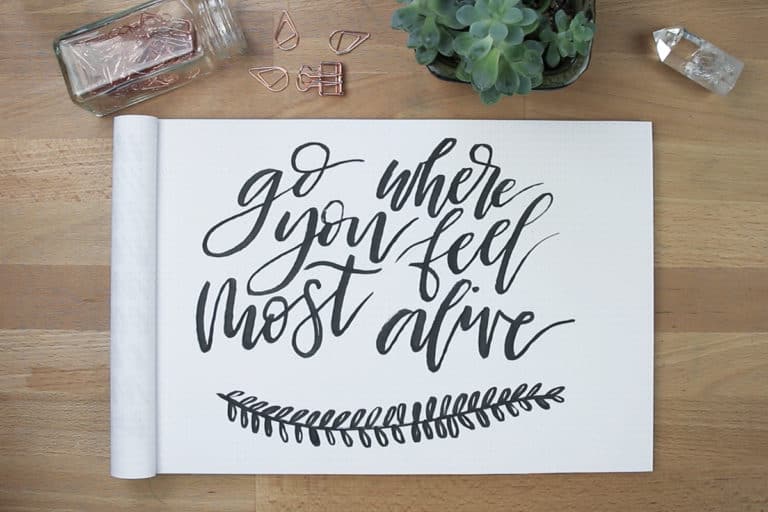 go where
you feel
most alive